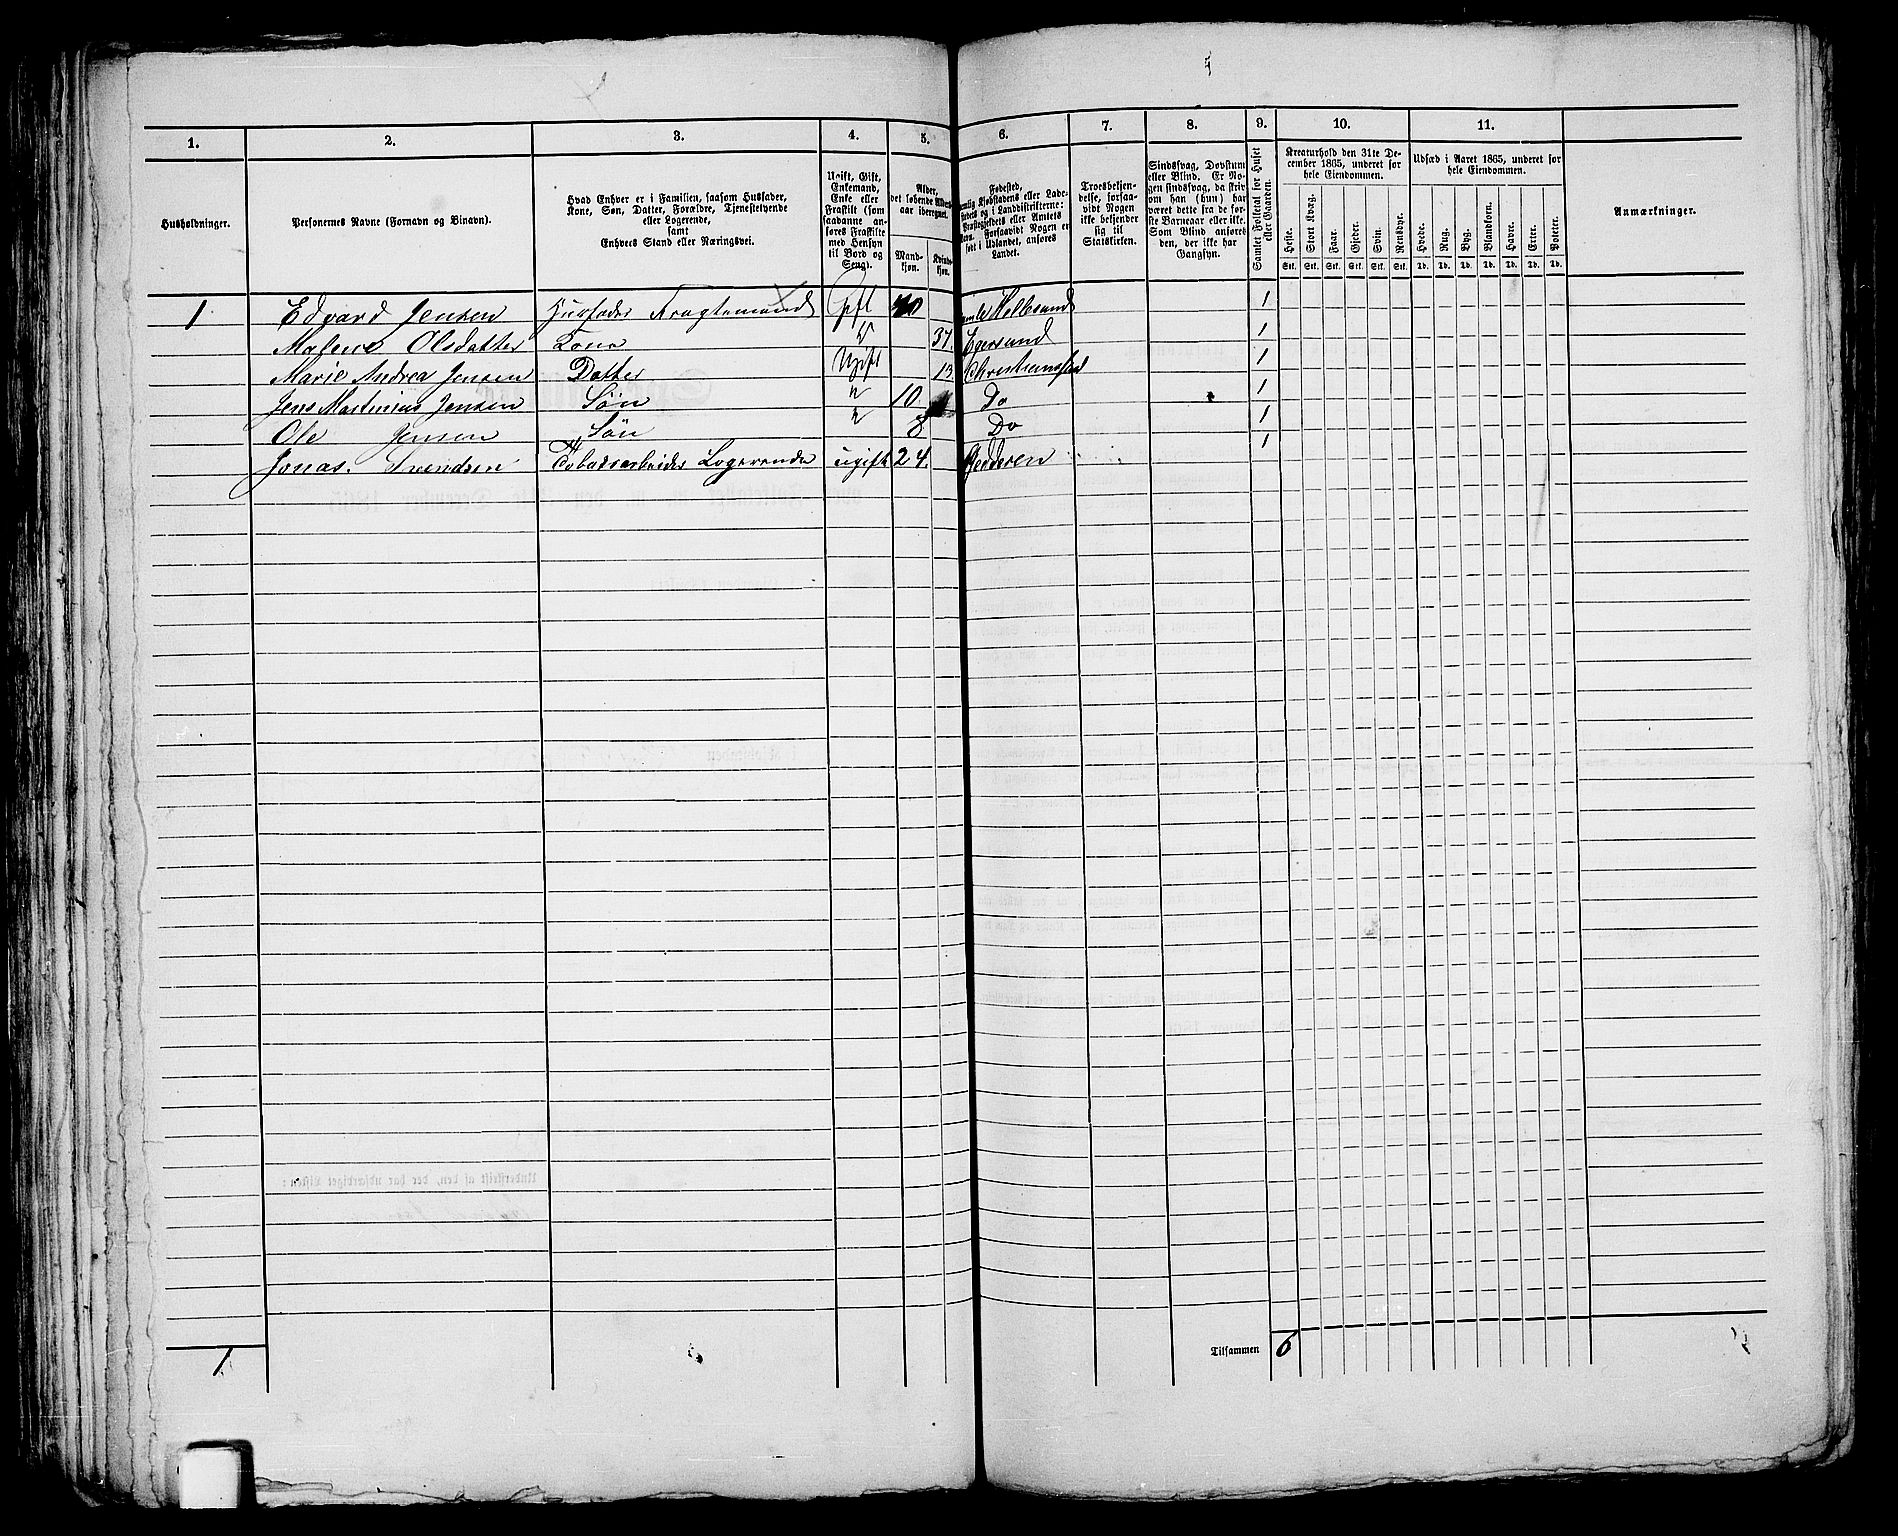 1. 2. 3. 4. 5. 6. 7. 8. 9. 10. 11.
Husholdninger.
Personernes Navne (Fornavn og Binavn).
Hvad Enhver er i Familien, saasom Husfader,
Kone, Søn, Datter, Forældre, Tjenestetyende
eller Logerende,
samt
Enhvers Stand eller Næringsvei.
Ugift, Gift,
Enkemand,
Enke eller
Fraskilt (som
saadanne an-
føres Fraskilte
med Hensyn
til Bord og
Seng).
Alder,
det løbende Alders-
aar iberegnet.
Mand-
kjøn.
Kvinde-
kjøn.
Fødested,
nemlig Kjøbstadens eller Lade-
stedets og i Landdistrikterne:
Præstegjeldets eller Amtets
Navn. Forsaavidt Nogen er
født i Udlandet, anføres
Landet.
Troesbekjen-
delse, forsaa-
vidt Nogen
ikke bekjender
sig til
Statskirken.
Sindssvag, Døvstum
eller Blind. Er No-
gen sindssvag, da skriv
om han (hun) har
været dette fra de før-
ste Barneaar eller ikke.
Som Blind anføres
den, der ikke har
Gangsyn.
Samlet Folketal for Huset
eller Gaarden.
Kreaturhold den 31te De-
cember 1865, underet for
hele Eiendommen.
Heste. Stort Kvæg. Faar. Gjeder. Svin. Rensdyr.
Stk. Stk. Stk. Stk. Stk. Stk.
Udsæd i Aaret 1865, underet for
hele Eiendommen.
Hvede. Rug. Byg. Blandkorn. Havre. Erter. Poteter.
Td. Td. Td. Td. Td. Td. Td.
Anmærkninger.
1 Edvard Jensen Husfader Fragtemand gift 40 Hellesund 1
Malene Olsdatter Kone 37. Egersund 1
Marie Andrea Jensen Datter Ugift 13. Christiansstad 1
Jens Martinius Jensen Søn 10 Do 1
Ole Jensen Søn 8 Do 1
Jonas Svendsen Tobaksarbeider Logerende ugift 24. Jedderen 1
1 Tilsammen 6